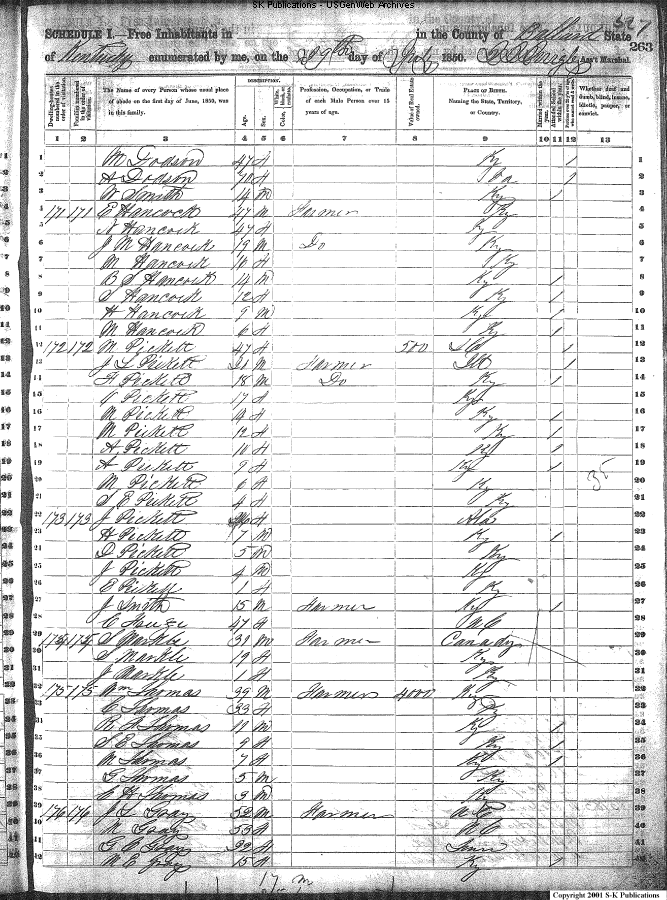 SK Publications - USGenWeb Archives
327
SCHEDULE I.—Free Inhabitants in in the County of Ballard State
263
of Kentucky enumerated by me, on the 29th day of July 1850. Ass't Marshal.
Dwelling-houses numbered in the order of visitation.
Families numbered in the order of visitation.
The Name of every Person whose usual place of abode on the first day of June, 1850, was in this family.
DESCRIPTION.
Age.
Sex.
Color, White, black, or mulatto.
Profession, Occupation, or Trade of each Male Person over 15 years of age.
Value of Real Estate owned.
PLACE OF BIRTH. Naming the State, Territory, or Country.
Married within the year.
Attended School within the year.
Whether deaf and dumb, blind, insane, idiotic, pauper, or convict.
1 2 3 4 5 6 7 8 9 10 11 12 13
1 M Dodson 47 f Ky 1
2 A Dodson 70 f 1
3 W Smith 14 M Ky 1
4 171 171 E Hancock 47 M Farmer Ky
5 N Hancock 47 f Ky
6 J M Hancock 19 M Do Ky
7 M Hancock 16 f Ky
8 B S Hancock 14 M Ky 1
9 S Hancock 12 f Ky 1
10 H Hancock 9 M Ky 1
11 M Hancock 6 f Ky 1
12 172 172 M Pickett 47 f 500 1
13 J L Pickett 21 M Farmer 1
14 H Pickett 18 M Do Ky 1
15 V Pickett 17 f Ky
16 M Pickett 14 f Ky 1
17 M Pickett 12 f Ky 1
18 A Pickett 10 f Ky 1
19 A Pickett 9 f Ky 1
20 M Pickett 6 f Ky
21 S E Pickett 4 f Ky
22 173 173 J Pickett f Ala
23 H Pickett 7 M Ky 1
24 D Pickett 5 M Ky
25 J Pickett 4 M Ky
26 E Pickett 1 f Ky
27 J Smith 15 M Farmer Ky 1
28 C 47 f NC
29 174 174 S Markle 39 M Farmer Canady
30 S Markle 19 f Ky
31 J Markle 1 f Ky
32 175 175 Wm Thomas 39 M Farmer 4000 Ky
33 C Thomas 33 f Ky
34 R A Thomas 11 M Ky 1
35 S E Thomas 9 f Ky 1
36 M Thomas 7 f Ky 1
37 G Thomas 5 M Ky
38 Thomas 3 M Ky
39 176 176 J L Gray 52 M Farmer
40 M Gray 53 f NC
41 Gray 22 f Tenn
42 M E Gray 15 f Ky 1
35
17 m
Copyright 2001 S-K Publications